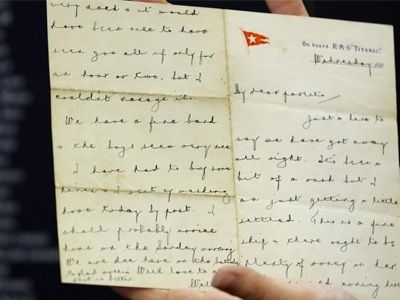 On board R.M.S. "TITANIC."
Wednesday 191
My dear parents,
Just a line to
say we have got away
all right. It's been a
bit of a rush but I
am just getting a little
settled. This is a fine
ship & there ought to be
plenty of money on her
missed coming home
very much & it would
have been nice to have
seen you all if only for
an hour or two, but I
couldn't manage it.
We have a fine band
& the boys seem very nice
I have had to buy some
linen & I sent my washing
home today by post. I
shall probably arrive
home on the Sunday morning
We are due here on the
glad mother's
is better. With love to